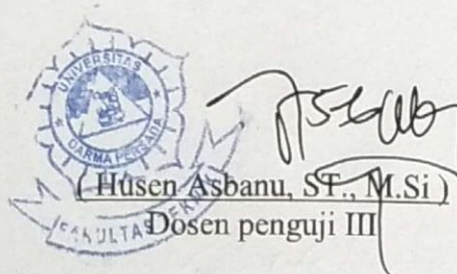 UNIVERSITAS
DARMA PERSADA
FAKULTAS TEKNIK
( Husen Asbanu, ST., M.Si )
Dosen penguji III